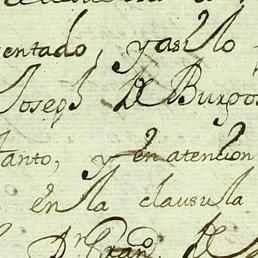 entado, y asi lo
Joseph De Burgos
tanto, y en atencion
en la clausula
Dn Franco. De